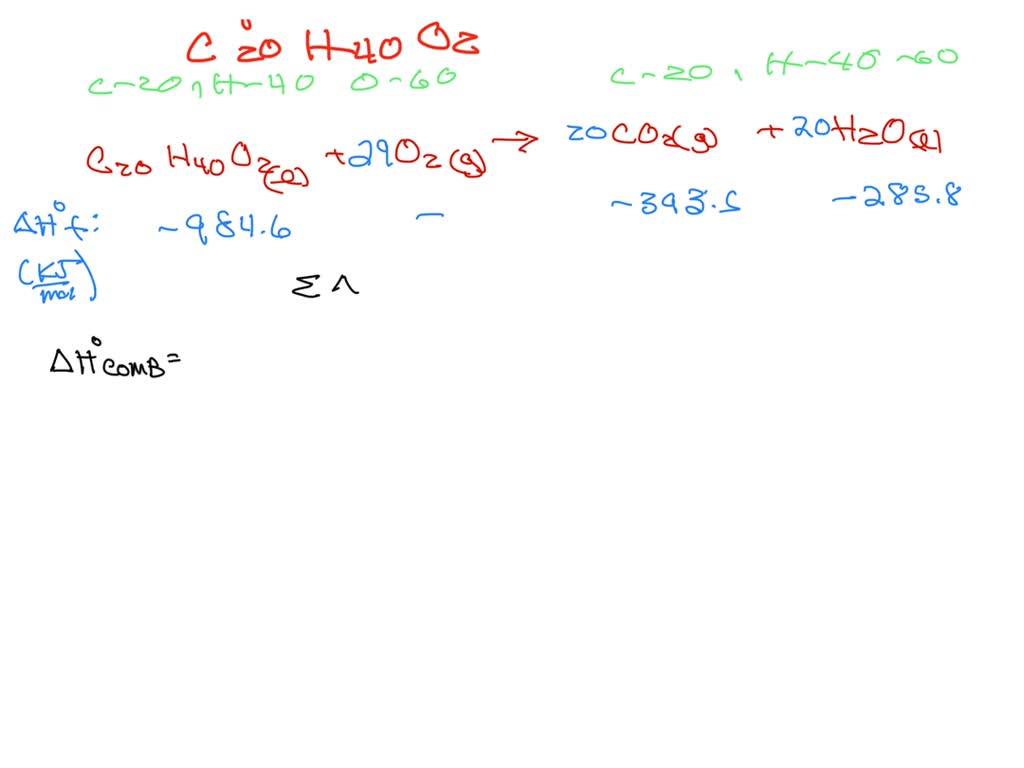 C20 H40 O2
C-20, H-40 O-60
C-20, H-40 -60
C20 H40 O2(l) + 29O2(g) → 20CO2(g) + 20H2O(l)
ΔH°f: -984.6 — -393.5 -285.8
(KJ/mol)
Σ Λ
ΔH°COMB=